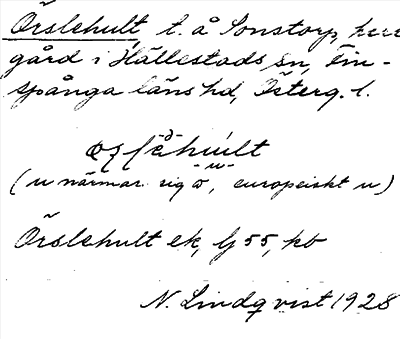 Örslehult t. å Sonstorp, herr
gård i Hällestads sn, Fin-
spånga läns hd, Österg. l.
(u närmar sig o, europeiskt u)
Örslehult ek, Gj 55, kb
N. Lindqvist 1928